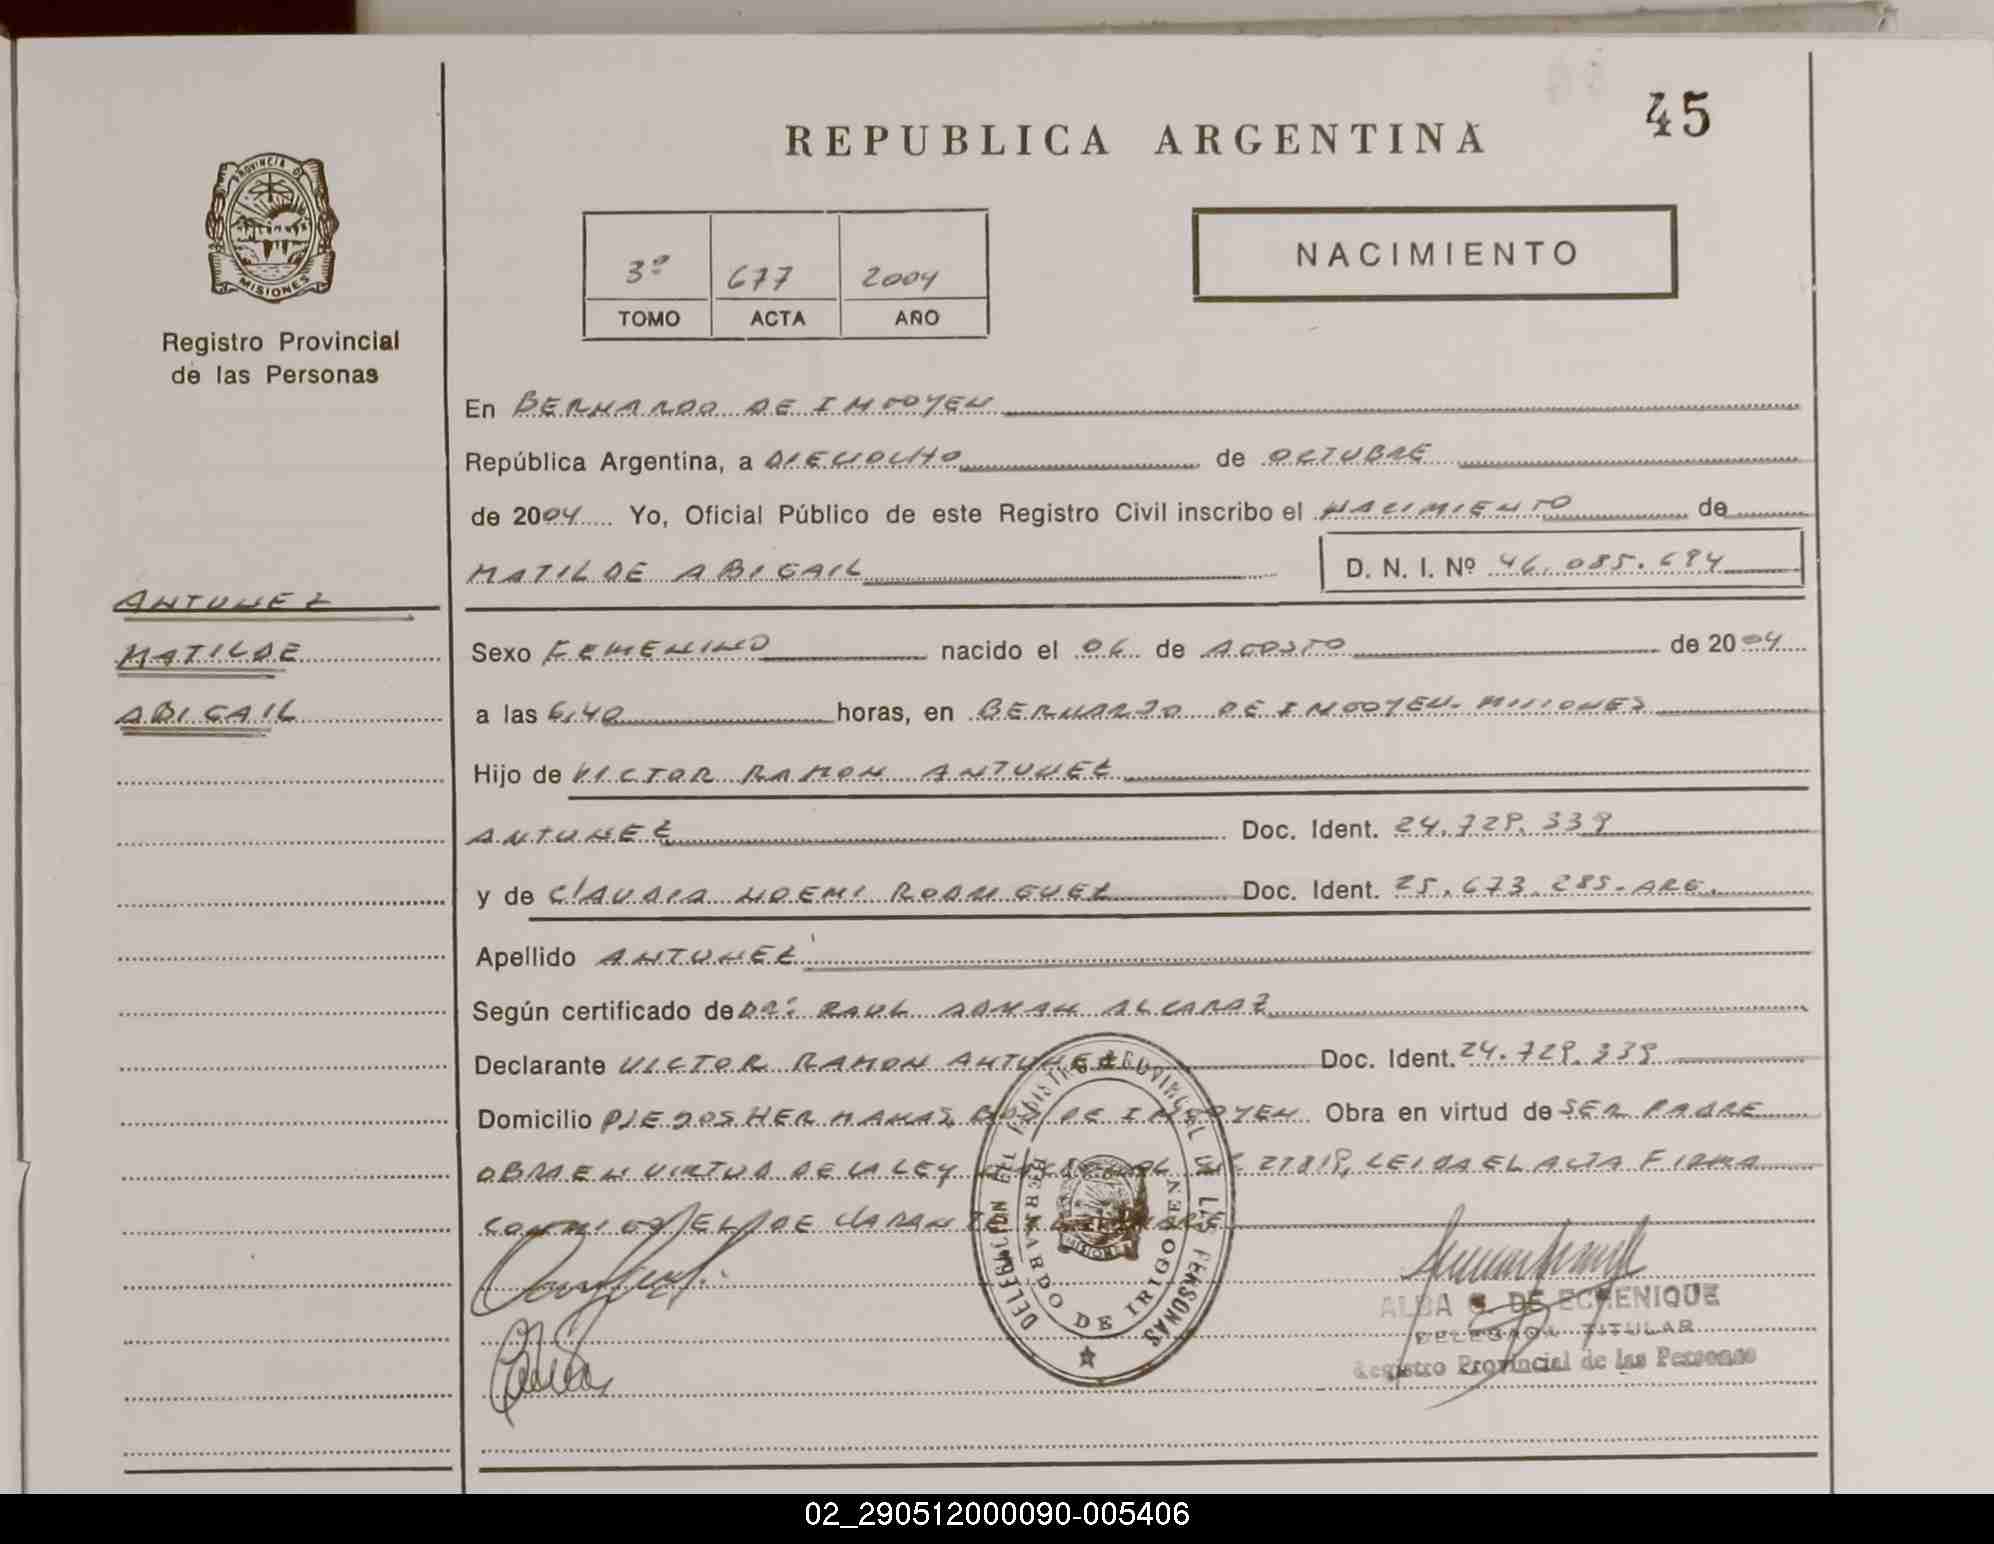 45
REPUBLICA ARGENTINA
PROVINCIA DE
MISIONES
NACIMIENTO
3º 677 2004
TOMO ACTA AÑO
Registro Provincial
de las Personas
En BERNARDO DE IRIGOYEN
República Argentina, a DIECIOCHO de OCTUBRE
de 2004 Yo, Oficial Público de este Registro Civil inscribo el NACIMIENTO de
MATILDE ABIGAIL D. N. I. Nº 46.085.694
ANTUNEZ
MATILDE
ABIGAIL
Sexo FEMENINO nacido el 06 de AGOSTO de 2004
a las 6,40 horas, en BERNARDO DE IRIGOYEN. MISIONES
Hijo de VICTOR RAMON ANTUNEZ
ANTUNEZ Doc. Ident. 24.729.339
y de CLAUDIA NOEMI RODRIGUEZ Doc. Ident. 25.673.285-ARG.
Apellido ANTUNEZ
Según certificado de DR: RAUL ADRIAN ALCARAZ
Declarante VICTOR RAMON ANTUNEZ Doc. Ident. 24.729.339
Domicilio PJE DOS HERMANAS, BDO DE IRIGOYEN Obra en virtud de SER PADRE
OBRA EN VIRTUD DE LA LEY LEIDA EL ACTA FIRMA
CONMIGO EL DECLARANTE
DELEGACION DEL REGISTRO PROVINCIAL DE LAS PERSONAS
BERNARDO DE IRIGOYEN
MISIONES
ALBA DE ECHENIQUE
DELEGADA TITULAR
Registro Provincial de las Personas
02_290512000090-005406